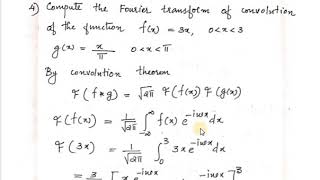 4) Compute the Fourier transform of convolution
of the function f(x) = 3x, 0<x<3
g(x) = x/π 0<x<π
By convolution theorem
F(f*g) = √2π F(f(x)) F(g(x))
F(f(x)) = 1/√2π ∫_{-∞}^{∞} f(x) e^{-iωx} dx
F(3x) = 1/√2π ∫_0^3 3x e^{-iωx} dx